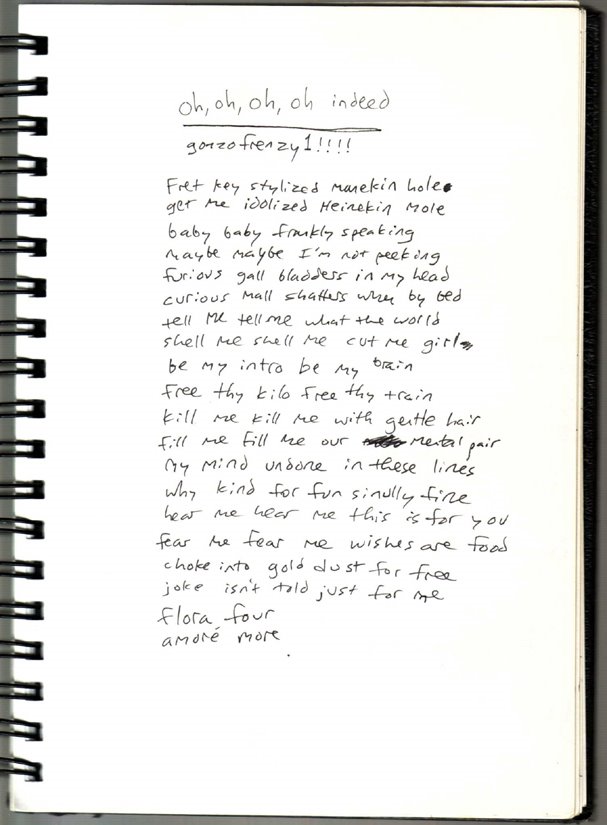 oh, oh, oh, oh indeed
gonzofrenzy1!!!!
Fret key stylized manekin hole
get me idolized Heinekin mole
baby baby frankly speaking
maybe maybe I'm not peeking
furious gall bladders in my head
curious mall shatters when by bed
tell me tell me what the world
shell me shell me cut me girl
be my intro be my brain
free thy kilo free thy train
kill me kill me with gentle hair
fill me fill me our mental pair
my mind undone in these lines
why kind for fun sinully fine
hear me hear me this is for you
fear me fear me wishes are food
choke into gold dust for free
joke isn't told just for me
flora four
amoré more